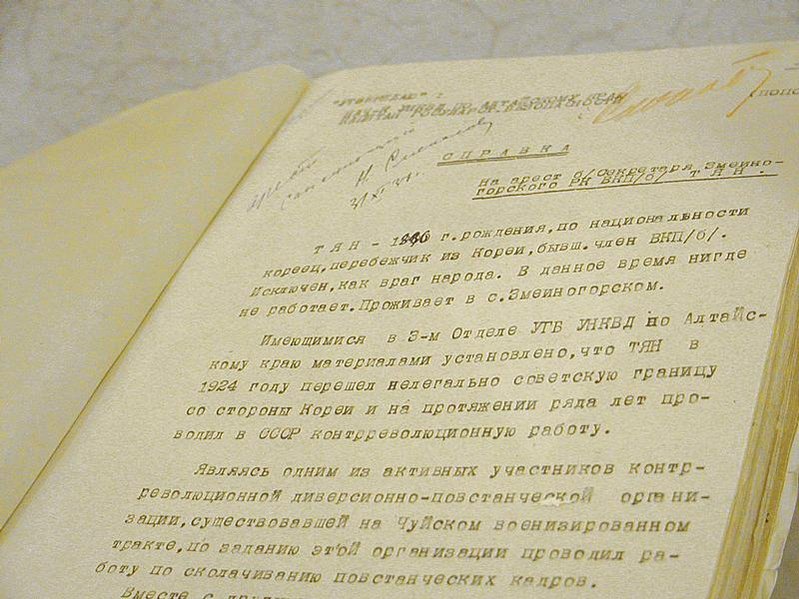 "УТВЕРЖДАЮ":
СПРАВКА
На арест б/Секретаря Змеино-
горского РК ВКП/б/ ТЯН.
ТЯН - г.рождения,по национальности
кореец,перебежчик из Кореи,бывш.член ВКП/б/.
Исключен,как враг народа. В данное время нигде
не работает.Проживает в с.Змеиногорском.
Имеющимися в 3-м Отделе УГБ УНКВД по Алтайс-
кому краю материалами установлено,что ТЯН в
1924 году перешел нелегально советскую границу
со стороны Кореи и на протяжении ряда лет про-
водил в СССР контрреволюционную работу.
Являясь одним из активных участников контр-
революционной диверсионно-повстанческой органи-
зации,существовавшей на Чуйском военизированном
тракте,по заданию этой организации проводил ра-
боту по сколачиванию повстанческих кадров.
Вместе с